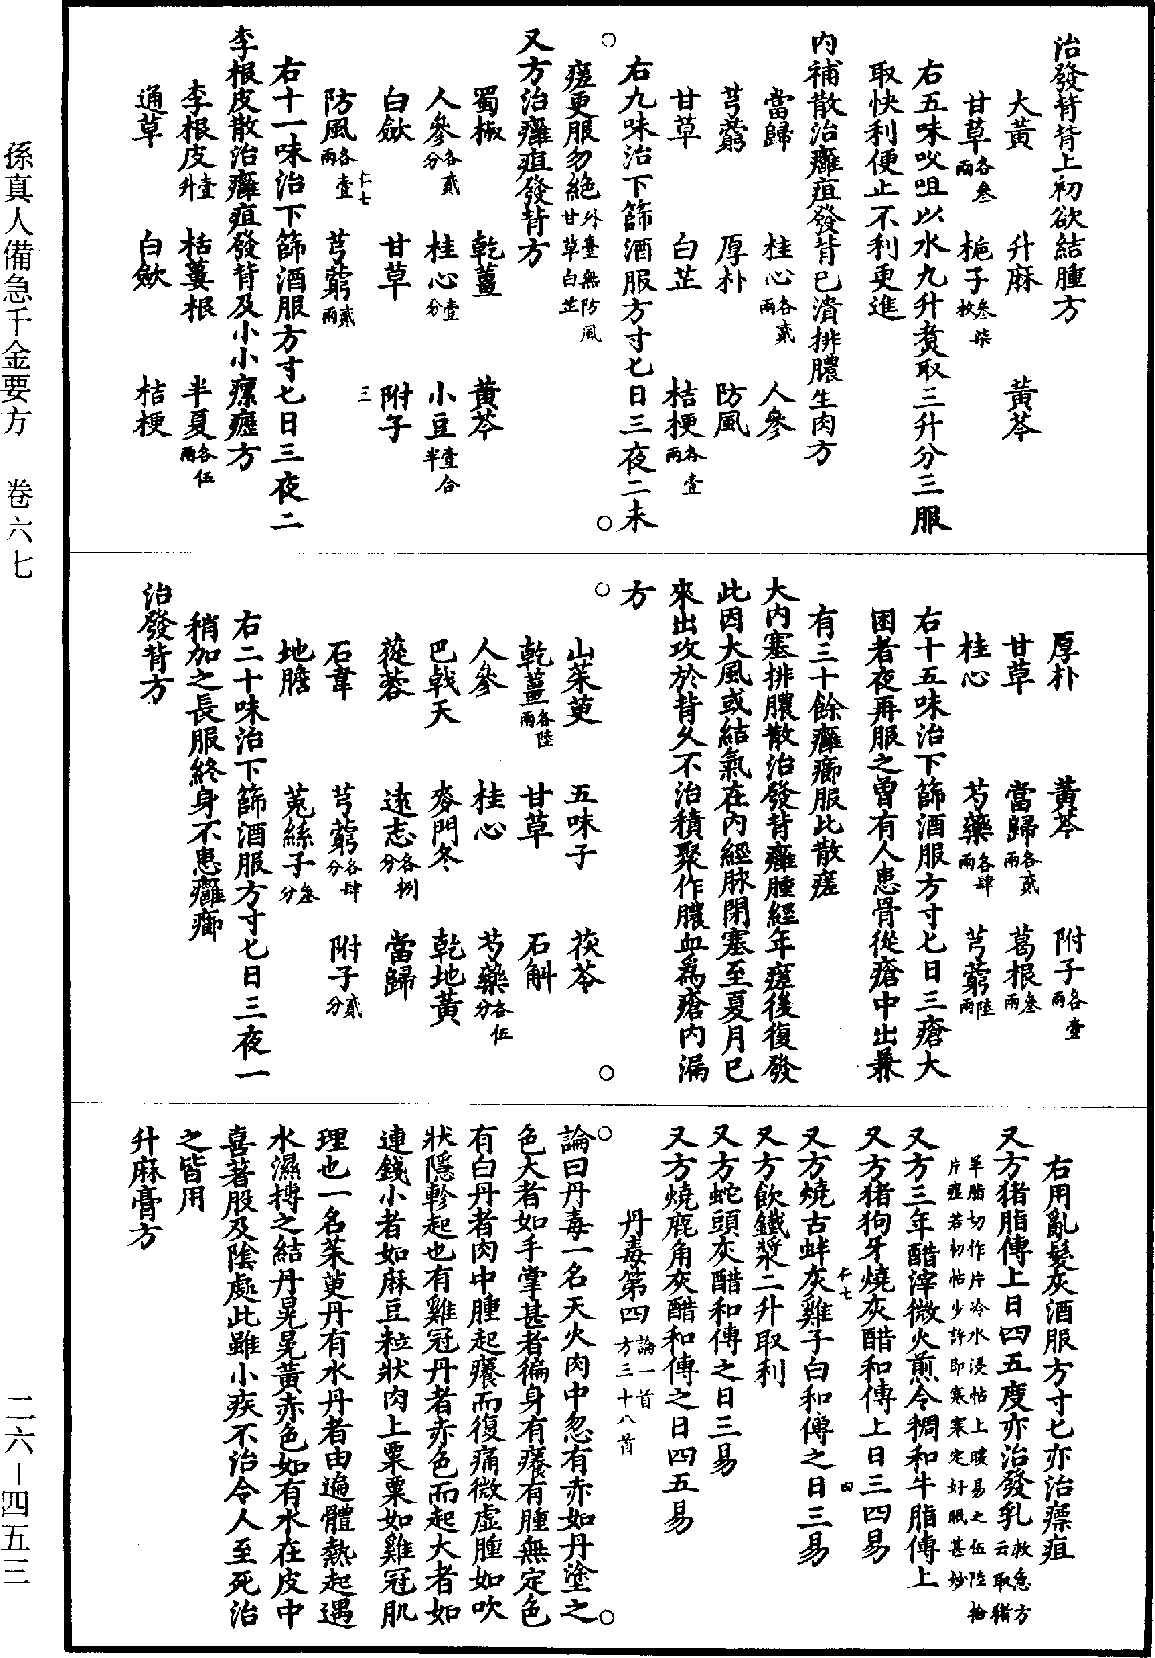 治發背背上初欲結腫方
大黃　升麻　黃芩
甘草各叁兩　梔子叁柒枚
右五味㕮咀以水九升煑取三升分三服
取快利便止不利更進
内補散治癰疽發背已潰排膿生肉方
當歸　桂心各貳兩　人參
芎藭　厚朴　防風
甘草　白芷　桔梗各壹兩
右九味治下篩酒服方寸匕日三夜二未
瘥更服勿絶外臺無防風甘草白芷
又方治癰疽發背方
蜀椒　乾薑　黃芩
人參各貳分　桂心壹分　小豆壹合半
白斂　甘草　附子
防風各壹兩　芎藭貳兩
仁七
三
右十一味治下篩酒服方寸匕日三夜二
李根皮散治癰疽發背及小小瘰癧方
李根皮壹升　栝蔞根　半夏各伍兩
通草　白斂　桔梗
厚朴　黃芩　附子各壹兩
甘草　當歸各貳兩　葛根叁兩
桂心　芍藥各肆兩　芎藭陸兩
右十五味治下篩酒服方寸匕日三瘡大
困者夜再服之曾有人患骨從瘡中出兼
有三十餘癰癤服此散瘥
大内塞排膿散治發背癰腫經年瘥後復發
此因大風或結氣在内經脉閉塞至夏月已
來出攻於背久不治積聚作膿血爲瘡内漏
方
山茱萸　五味子　茯苓
乾薑各陸兩　甘草　石斛
人參　桂心　芍藥各伍分
巴戟天　麥門冬　乾地黃
蓯蓉　遠志各捌分　當歸
石韋　芎藭各肆分　附子貳分
地膽　菟絲子叁分
右二十味治下篩酒服方寸匕日三夜一
稍加之長服終身不患癰癤
治發背方
右用亂髮灰酒服方寸匕亦治瘭疽
又方猪脂傅上日四五度亦治發乳救急方云取猪
羊脂切作片冷水浸帖上暖易之伍陸拾
片瘥若初帖少許即寒寒定好眠甚妙
又方三年醋滓微火煎令稠和牛脂傅上
又方猪狗牙燒灰醋和傅上日三四易
仁七
四
又方燒古蚌灰雞子白和傅之日三易
又方飲鐵漿二升取利
又方蛇頭灰醋和傅之日三易
又方燒鹿角灰醋和傅之日四五易
丹毒第四論一首方三十八首
論曰丹毒一名天火肉中忽有赤如丹塗之
色大者如手掌甚者徧身有癢有腫無定色
有白丹者肉中腫起癢而復痛微虛腫如吹
狀隱軫起也有雞冠丹者赤色而起大者如
連錢小者如麻豆粒狀肉上粟粟如雞冠肌
理也一名茱萸丹有水丹者由遍體熱起遇
水濕搏之結丹晃晃黃赤色如有水在皮中
喜著股及陰處此雖小疾不治令人至死治
之皆用
升麻膏方
孫真人備急千金要方　卷六七
二六－四五三